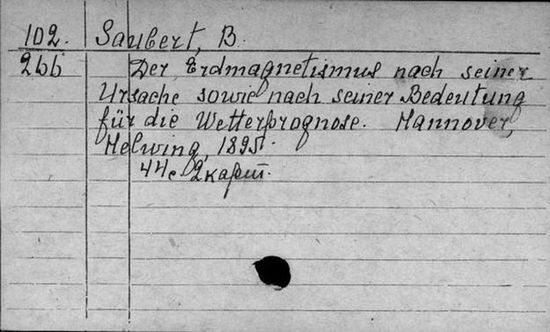 102. Saubert, B.
266 Der Erdmagnetismus nach seiner
Ursache sowie nach seiner Bedeutung
für die Wetterprognose. Hannover,
Helwing, 1895.
44с. 2